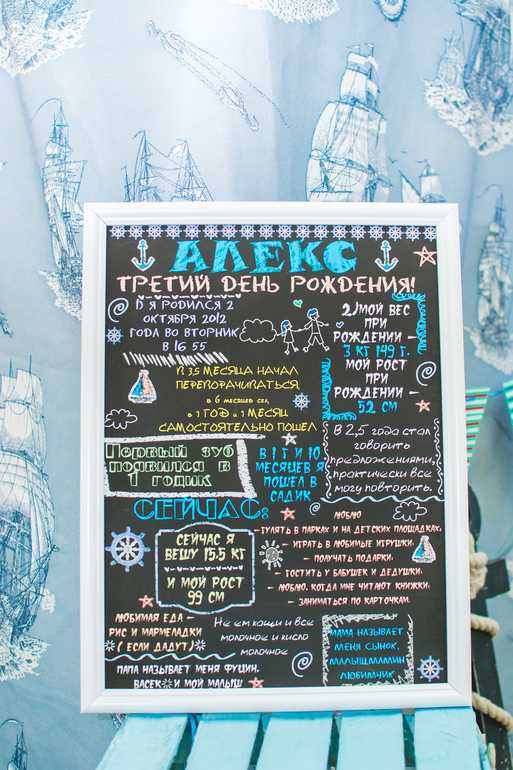 АЛЕКС
ТРЕТИЙ ДЕНЬ РОЖДЕНИЯ!
1) Я РОДИЛСЯ 2
ОКТЯБРЯ 2012
ГОДА ВО ВТОРНИК
В 16 55
2) МОЙ ВЕС
ПРИ
РОЖДЕНИИ -
3 КГ 149 Г.
МОЙ РОСТ
ПРИ
РОЖДЕНИИ -
52 СМ
В 3,5 МЕСЯЦА НАЧАЛ
ПЕРЕВОРАЧИВАТЬСЯ
В 6 МЕСЯЦЕВ СЕЛ,
В 1 ГОД И 1 МЕСЯЦ
САМОСТОЯТЕЛЬНО ПОШЕЛ
ПЕРВЫЙ ЗУБ
ПОЯВИЛСЯ В
1 ГОДИК
В 1 Г И 10
МЕСЯЦЕВ Я
ПОШЕЛ В
САДИК
В 2,5 ГОДА СТАЛ
ГОВОРИТЬ
ПРЕДЛОЖЕНИЯМИ,
ПРАКТИЧЕСКИ ВСЕ
МОГУ ПОВТОРИТЬ.
СЕЙЧАС:
СЕЙЧАС Я
ВЕШУ 15.5 КГ
И МОЙ РОСТ
99 СМ
ЛЮБЛЮ
- ГУЛЯТЬ В ПАРКАХ И НА ДЕТСКИХ ПЛОЩАДКАХ,
- ИГРАТЬ В ЛЮБИМЫЕ ИГРУШКИ,
- ПОЛУЧАТЬ ПОДАРКИ,
- ГОСТИТЬ У БАБУШЕК И ДЕДУШКИ,
- ЛЮБЛЮ, КОГДА МНЕ ЧИТАЮТ КНИЖКИ,
- ЗАНИМАТЬСЯ ПО КАРТОЧКАМ.
ЛЮБИМАЯ ЕДА -
РИС И МАРМЕЛАДКИ
( ЕСЛИ ДАДУТ)
НЕ ЕМ КАШИ И ВСЕ
МОЛОЧНОЕ И КИСЛО
МОЛОЧНОЕ
МАМА НАЗЫВАЕТ
МЕНЯ СЫНОК,
ЛЮБИМЧИК
ПАПА НАЗЫВАЕТ МЕНЯ ФУЦИН,
ВАСЕК И МОЙ МАЛЫШ